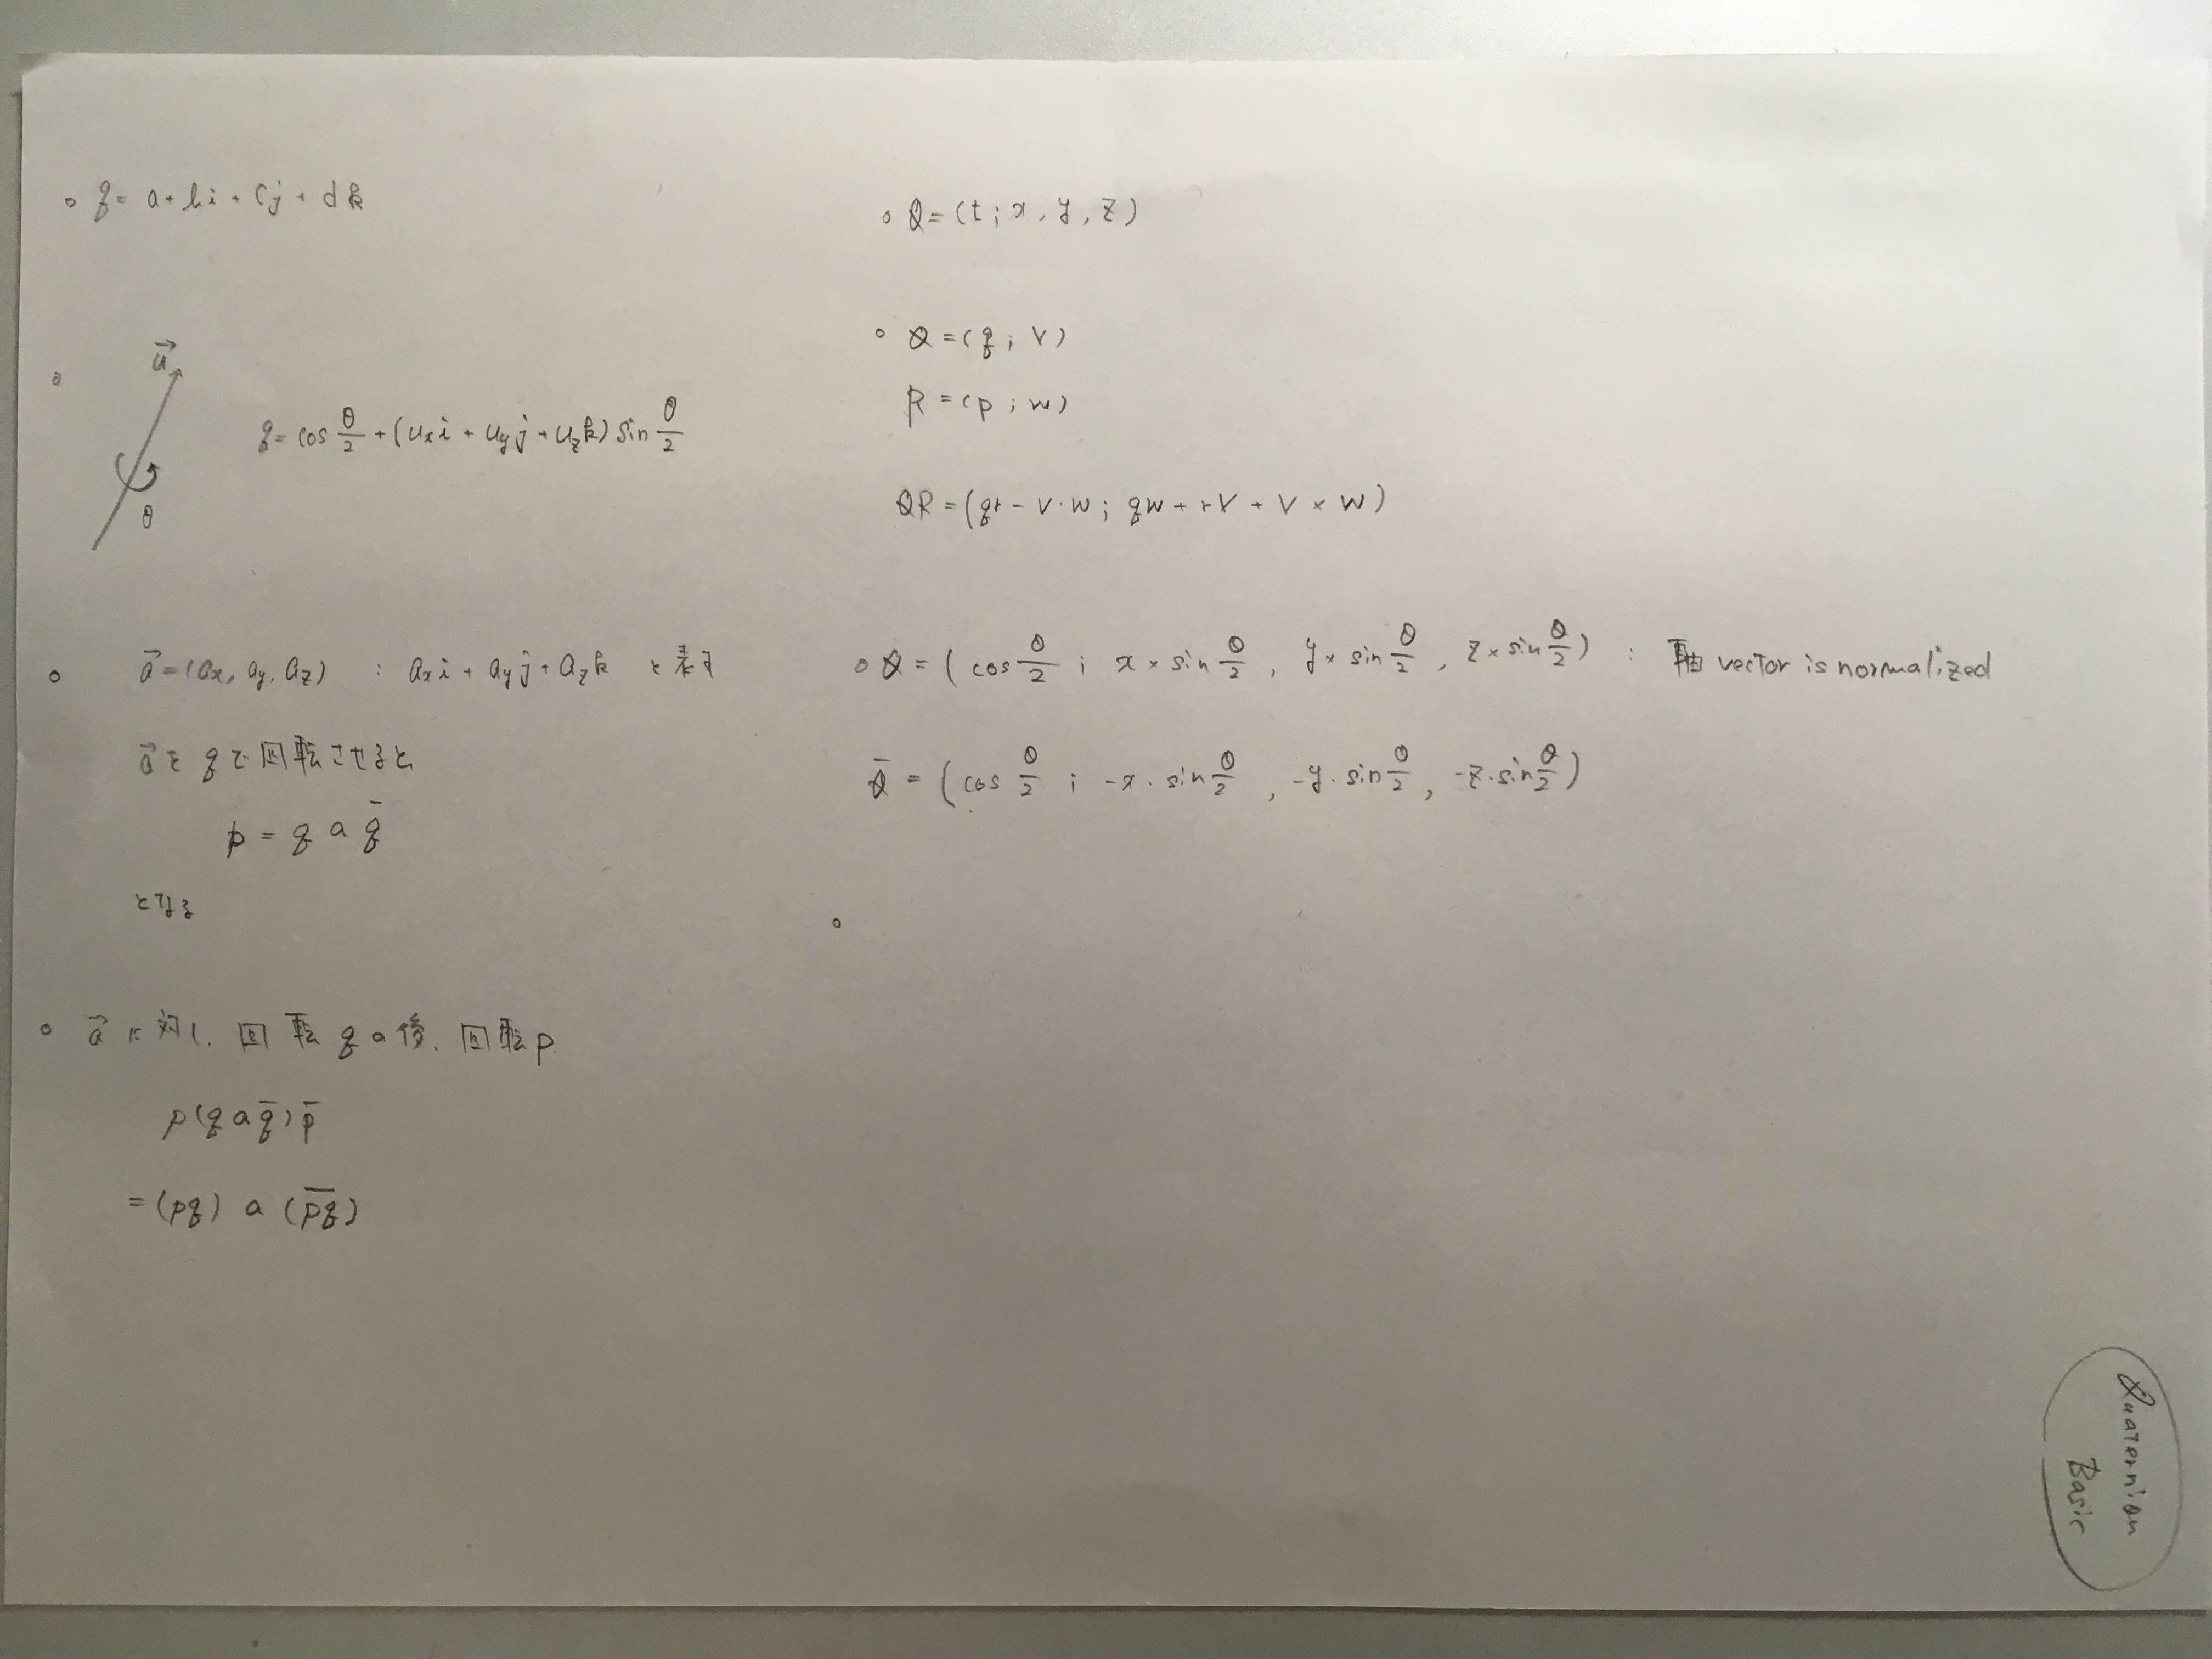 q = a + bi + cj + dk
u⃗
θ
q = cos θ/2 + (uₓi + u_yj + u_zk) sin θ/2
a⃗ = (aₓ, a_y, a_z) : aₓi + a_yj + a_zk と表す
a⃗を qで回転させると
p = q a q̄
となる
a⃗に対し、回転qの後、回転p.
p(q a q̄)p̄
= (pq) a (p̅q̅)
Q = (t ; x, y, z)
Q = (q ; V)
R = (p ; w)
QR = (qr - V・W ; qW + rV + V × W)
Q = (cos θ/2 ; x × sin θ/2, y × sin θ/2, z × sin θ/2) : 軸 vector is normalized
Q̄ = (cos θ/2 ; -x・sin θ/2, -y・sin θ/2, -z・sin θ/2)
Quaternion
Basic